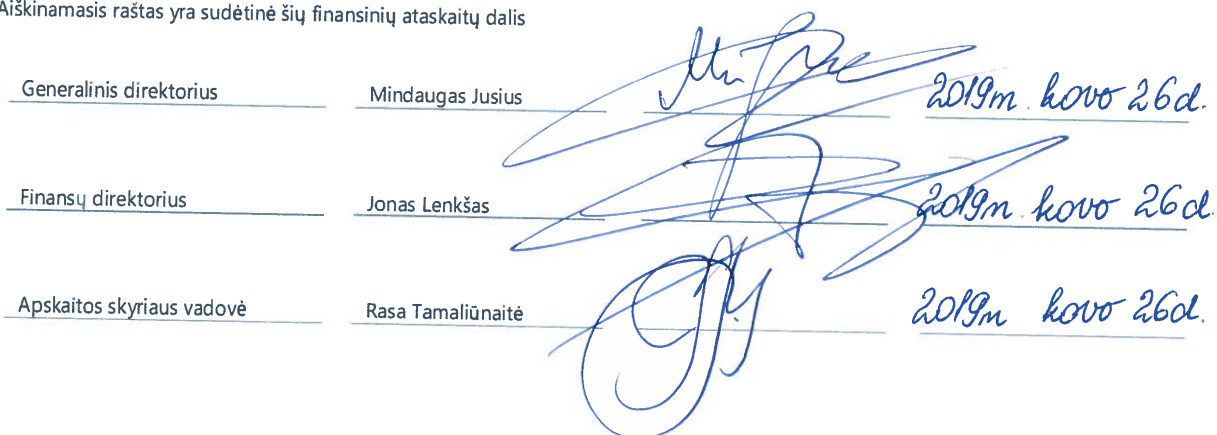 Aiškinamasis raštas yra sudėtinė šių finansinių ataskaitų dalis
Generalinis direktorius Mindaugas Jusius 2019m. kovo 26d.
Finansų direktorius Jonas Lenkšas 2019m. kovo 26d.
Apskaitos skyriaus vadovė Rasa Tamaliūnaitė 2019m kovo 26d.